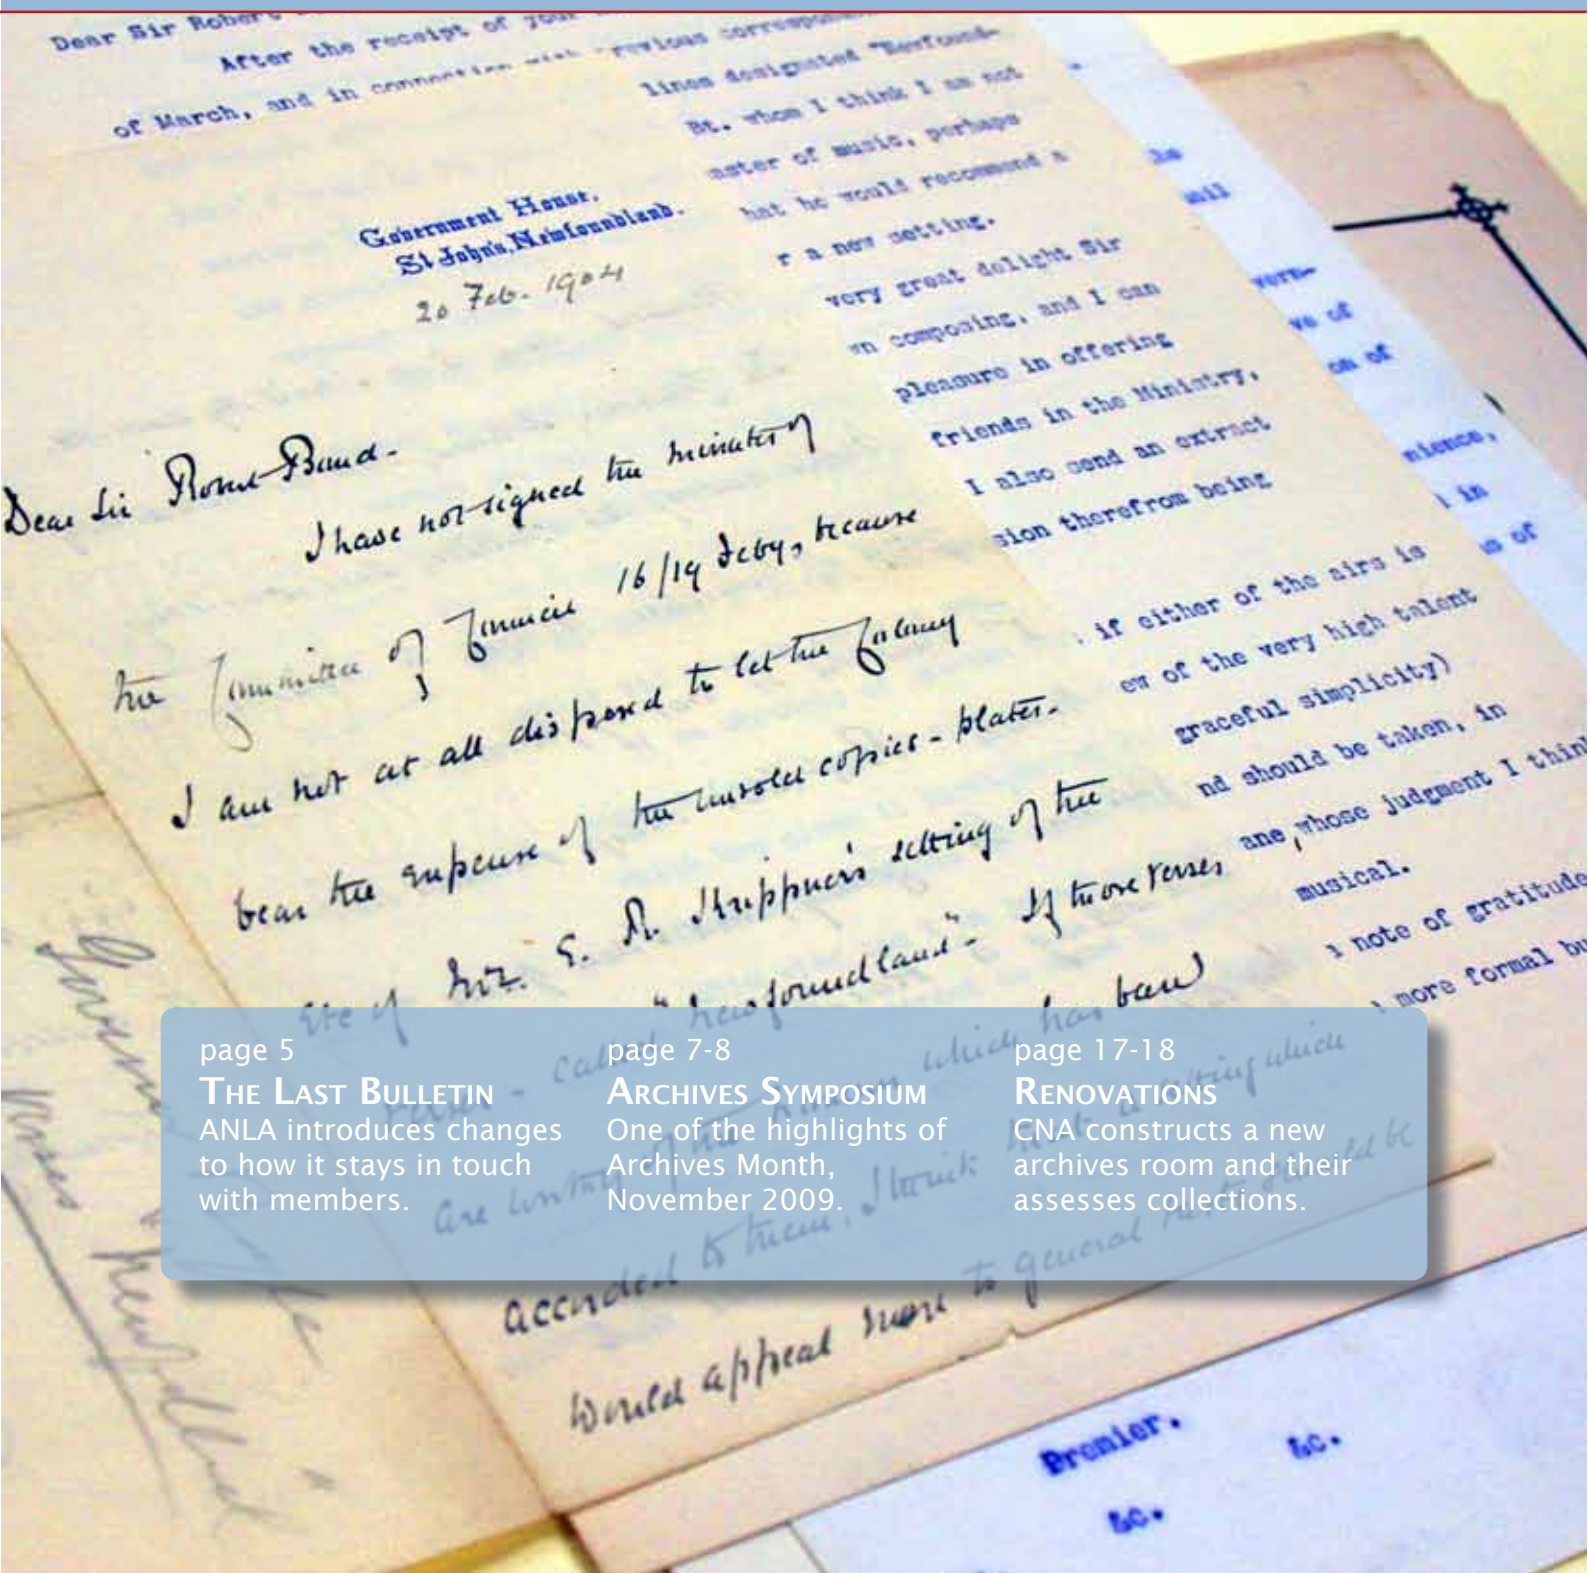 Dear Sir Robert
After the receipt of your
of March, and in connection with previous
lines designated "Newfound-
Bt. whom I think I am not
aster of music, perhaps
hat he would recommend a
r a new setting.
very great delight Sir
wn composing, and I can
pleasure in offering
friends in the Ministry,
I also send an extract
sion therefrom being
if either of the airs is
ew of the very high talent
graceful simplicity)
nd should be taken, in
ane, whose judgment I think
musical.
a note of gratitude
more formal bu
Government House,
St John's, Newfoundland.
20 Feb. 1904
Dear Sir Robert Bond-
I have not signed the minutes of
the Committee of Council 16/19 Feby, because
I am not at all disposed to let the Colony
bear the expense of the unsold copies - plates-
etc of Mr. E. R. Krippner's setting of the
verses - called "Newfoundland". If those verses
are worthy of the honour which has been
accorded to them, I think that a setting which
would appeal more to general should be
ve of
on of
nience,
in
us of
Premier.
&c.
&c.
page 5
THE LAST BULLETIN
ANLA introduces changes
to how it stays in touch
with members.
page 7-8
ARCHIVES SYMPOSIUM
One of the highlights of
Archives Month,
November 2009.
page 17-18
RENOVATIONS
CNA constructs a new
archives room and their
assesses collections.